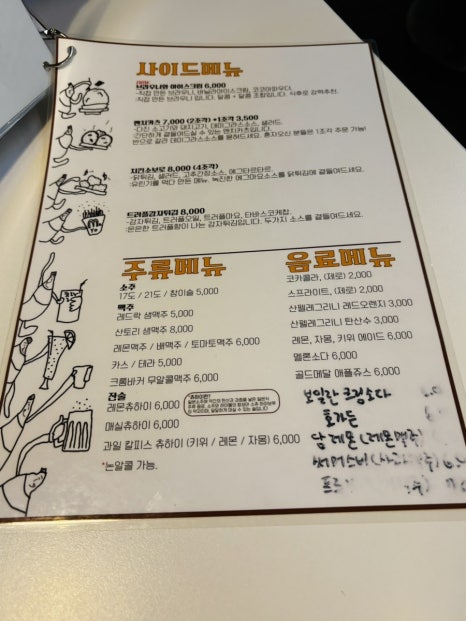 사이드메뉴
브라우니와 아이스크림 6,000
-직접 만든 브라우니, 바닐라아이스크림, 코코아파우더.
-직접 만든 브라우니 입니다. 달콤 + 달콤 조합입니다. 식후로 강력추천.
멘치카츠 7,000 (2조각) +1조각 3,500
-다진 소고기와 돼지고기, 데미그라스소스, 샐러드.
-간단하게 곁들이실 수 있는 멘치카츠입니다.
반으로 갈라 데미그라스소스를 묻혀드세요. 혼자오신 분들은 1조각 주문 가능!
치킨소보로 8,000 (4조각)
-닭튀김, 샐러드, 고추간장소스, 에그타르타르.
트러플감자튀김 8,000
-감자튀김, 트러플오일, 트러플마요, 타바스코케찹.
-은은한 트러플향이 나는 감자튀김입니다. 두가지 소스를 곁들여드세요.
주류메뉴
소주
17도 / 21도 / 참이슬 5,000
맥주
레드락 생맥주 5,000
산토리 생맥주 8,000
레몬맥주 / 배맥주 / 토마토맥주 6,000
카스 / 테라 5,000
크롬바커 무알콜맥주 6,000
잔술
레몬츄하이 6,000
츄하이란?
매실츄하이 6,000
과일 칼피스 츄하이 (키위 / 레몬 / 자몽) 6,000
*논알콜 가능.
음료메뉴
코카콜라, (제로) 2,000
스프라이트, (제로) 2,000
산펠레그리니 레드오렌지 3,000
산펠레그리니 탄산수 3,000
레몬, 자몽, 키위 에이드 6,000
멜론소다 6,000
골드메달 애플쥬스 6,000
보일란 크림소다
호가든
담레몬 (레몬맥주)
써머스비 (사과